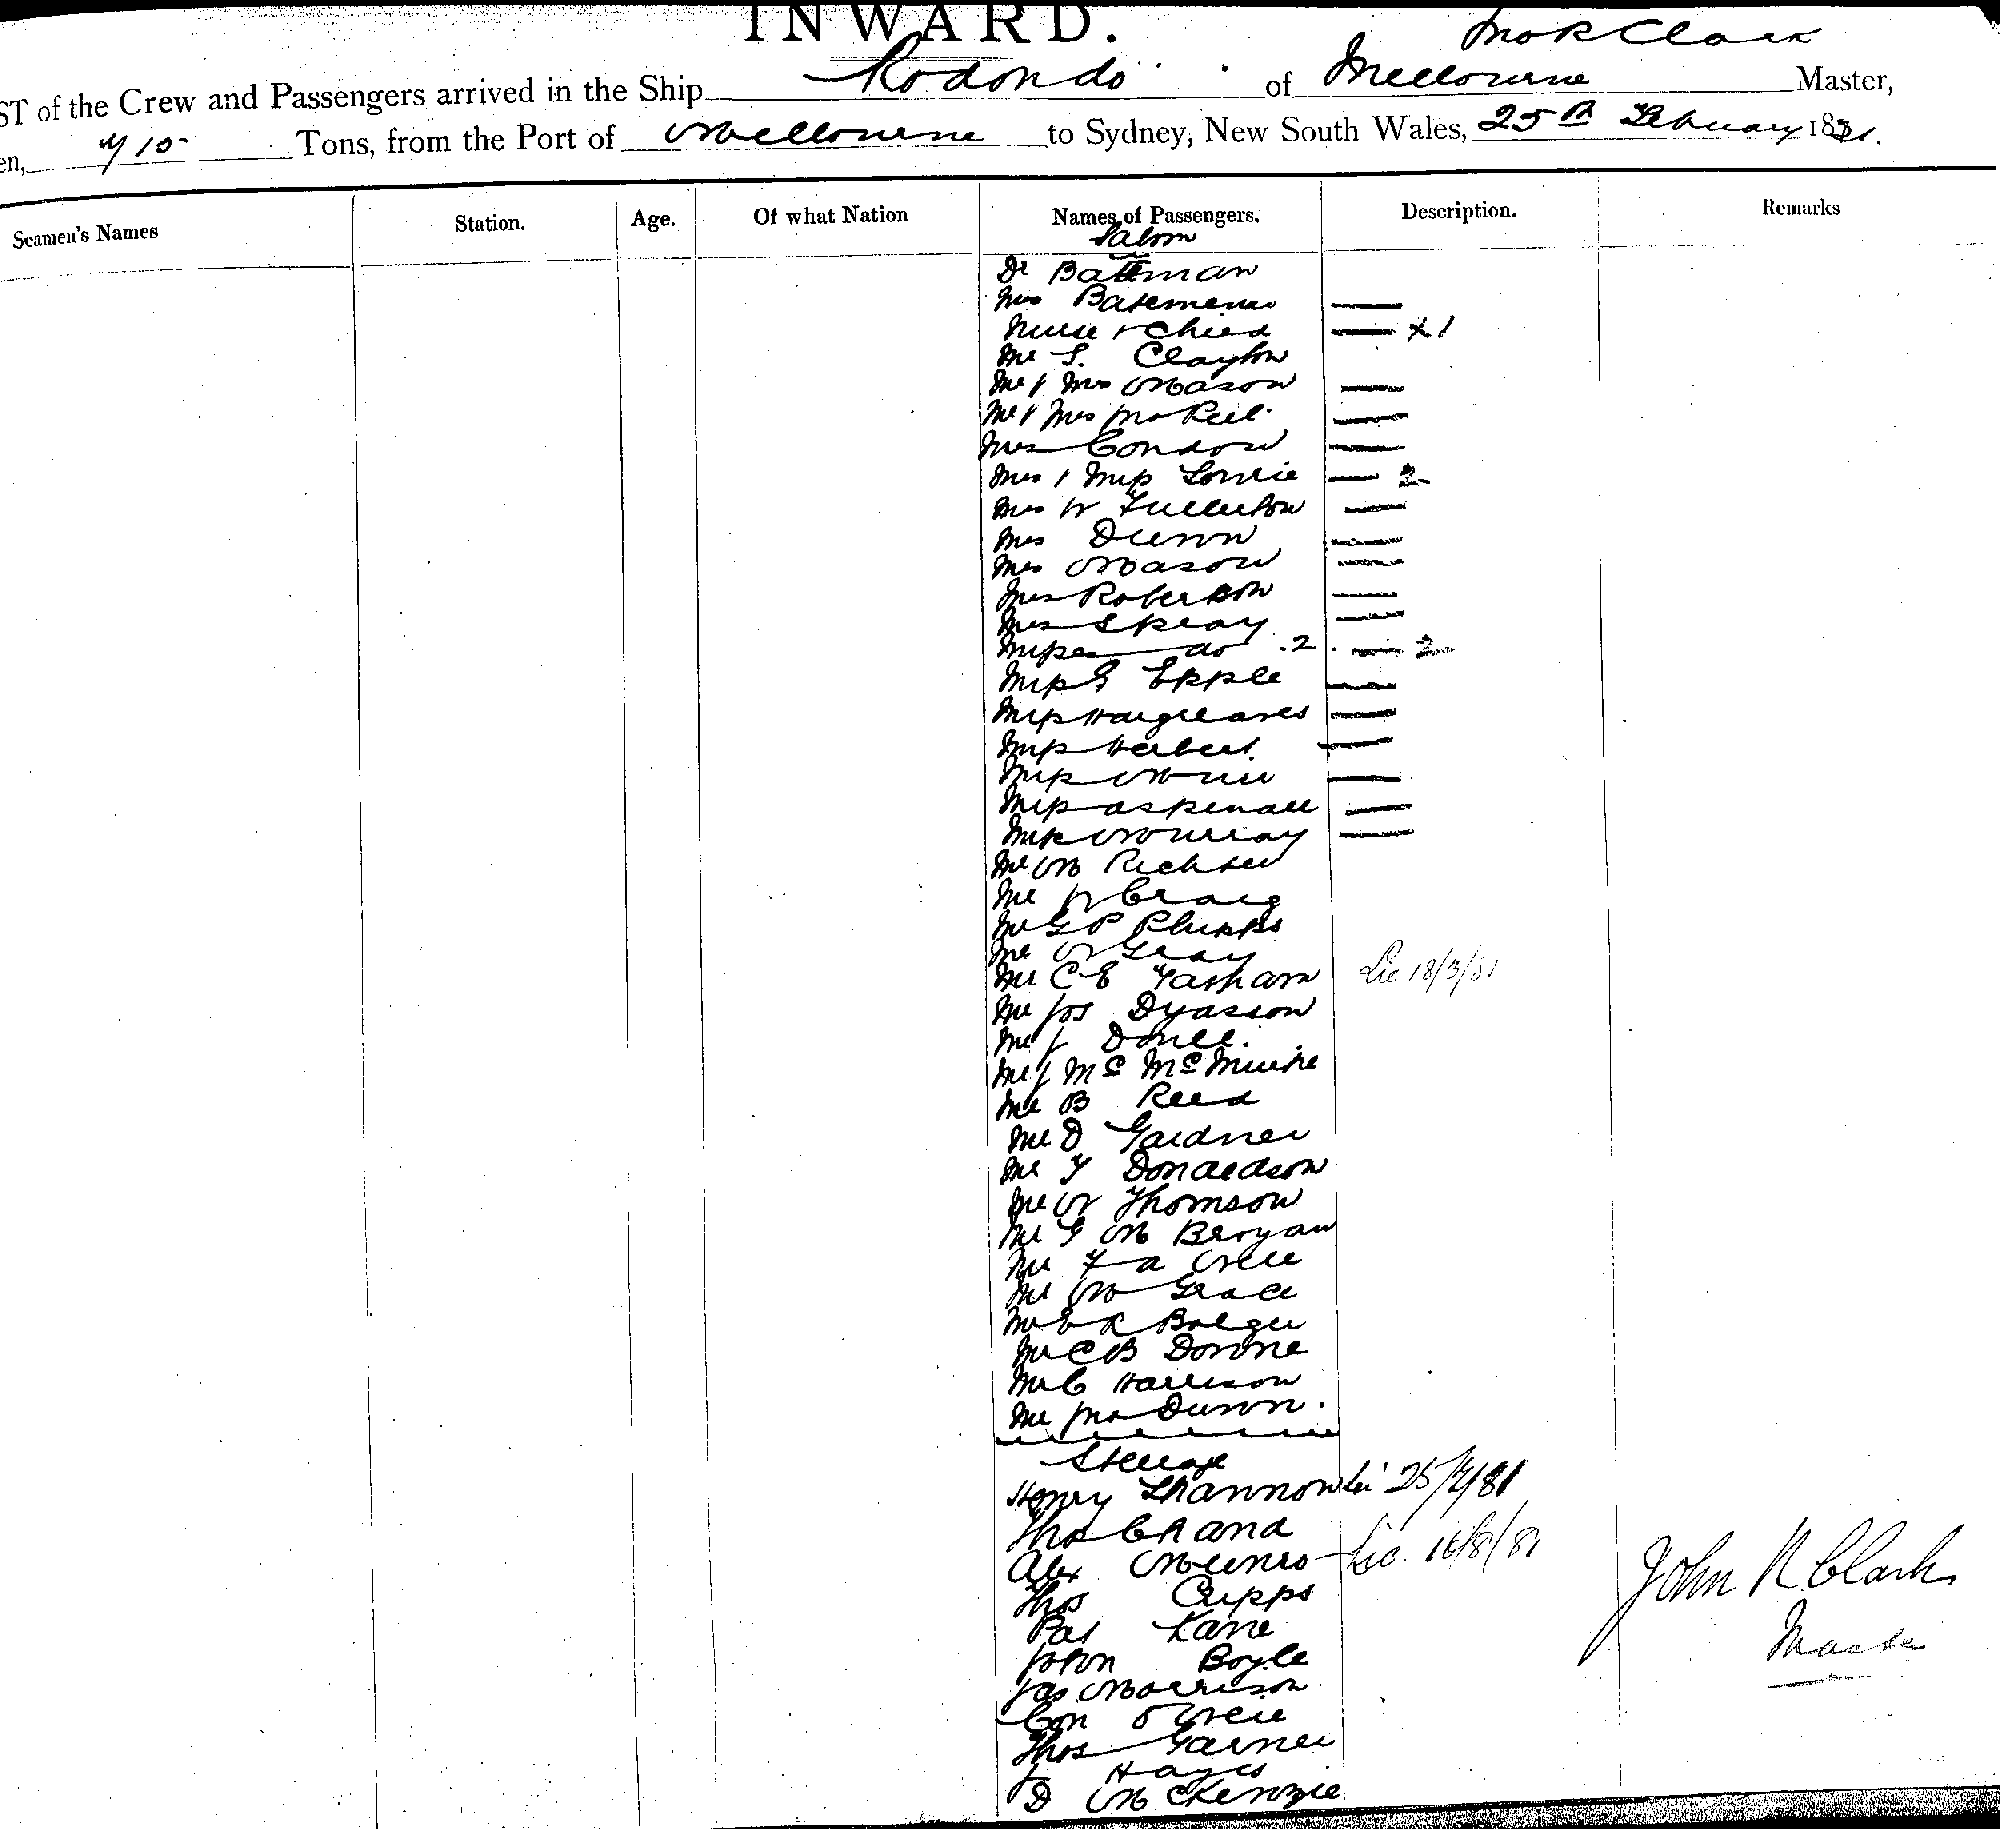 INWARD.
Jno R Clark
ST of the Crew and Passengers arrived in the Ship Rodondo of Melbourne Master,
en, 710 Tons, from the Port of Melbourne to Sydney, New South Wales, 25th February 1881.
Seamen's Names Station. Age. Of what Nation Names of Passengers. Description. Remarks
Saloon
Dr Bateman
Mrs Bateman —
Nurse & Child — & 1
Mr S. Clayton
Mr & Mrs Mason —
Mr & Mrs —
Mrs Condon —
Mrs & Miss Lowrie — 2
Mrs W Fullerton —
Mrs Dunn —
Mrs Mason —
Mrs Robertson —
Mrs —
Misses do 2 — 2
Miss G Epple —
Miss Hargreaves —
Miss Herbert —
Miss —
Miss Aspinall —
Miss Murray —
Mr M Richter
Mr W Craig
Mr G P Phipps
Mr W Gray
Mr C E Farham Lic 18/3/81
Mr Jos Dyasson
Mr J
Mr J Mc
Mr B Reed
Mr D Gardner
Mr F Donaldson
Mr W Thomson
Mr G M Bryan
Mr F A
Mr M Grace
Mr E R Bolger
Mr C B Downe
Mr C Harrison
Mr Jno Dunn.
Steerage
Henry Shannon Lic 25/7/81
Thos Chand
Alex Munro Lic. 16/8/81
Thos Cripps
Pat Kane
John Boyle
Jas Morrison
Con O'Neill
Thos Garner
J Hayes
D McKenzie
John R Clark
Master